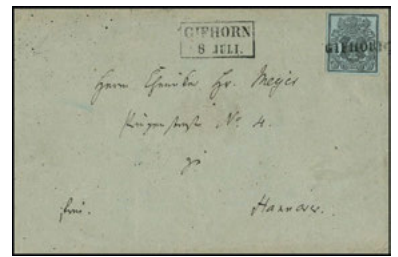 GIFHORN
8 JULI.
GIFHORN
Herrn Hr. Meyer
No. 4.
zu
frei.
Hannover.